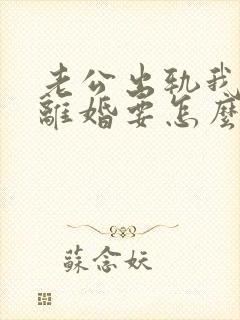 老公出軌我
離婚要怎麼
蘇念妖